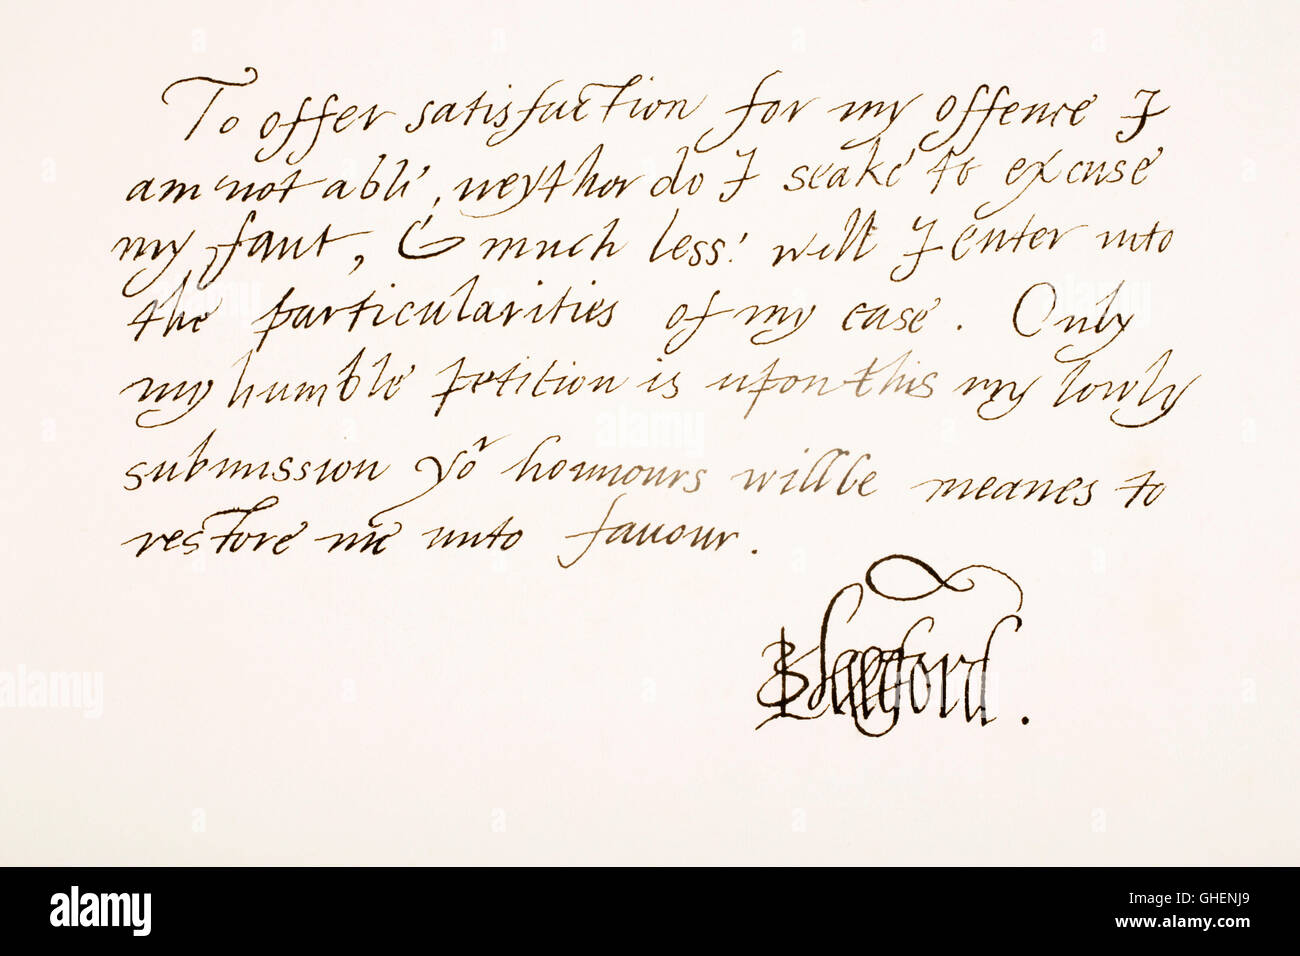 To offer satisfaction for my offence I
am not able, neythor do I seake to excuse
my faut, & much less will I enter into
the particularities of my case. Only
my humble petition is upon this my lowly
submission yoʳ honnours will be meanes to
restore me unto fauour.
alamy
Image ID: GHENJ9
www.alamy.com